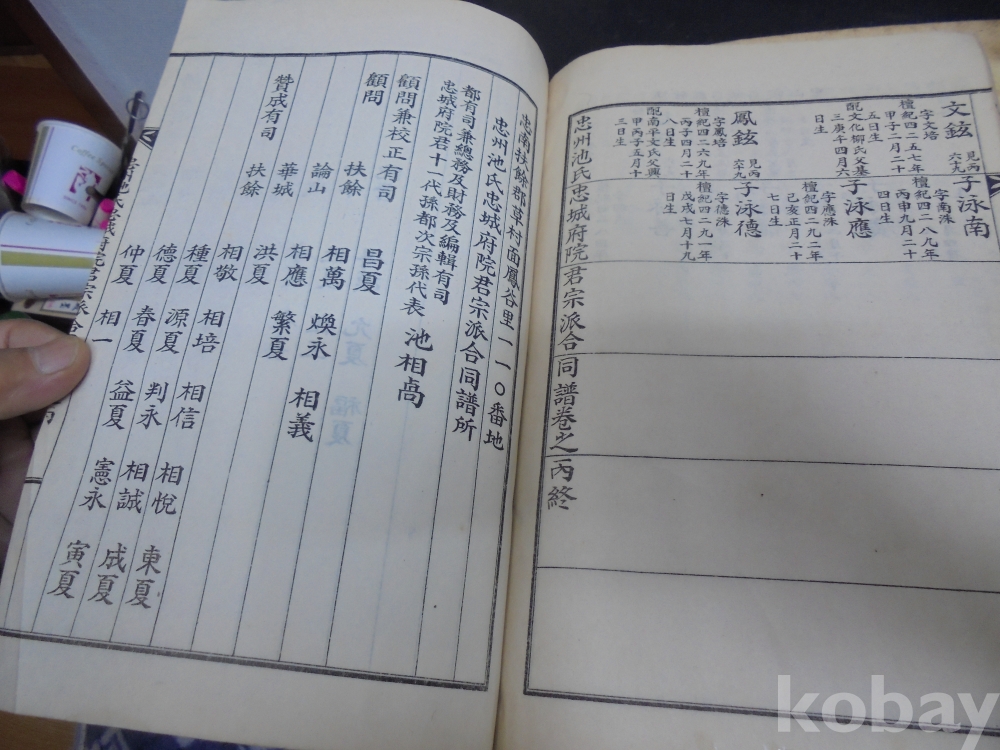 文鉉 見丙六十九
字文培
檀紀四二五七年
甲子二月二十
五日生
配文化柳氏父基
三庚午四月六
日生
鳳鉉 見丙六九
字鳳培
檀紀四二六九年
丙子四月二十
八日生
配南平文氏父興
甲丙子五月十
三日生
子泳南
字南洙
檀紀四二八九年
丙申九月二十
四日生
子泳應
字應洙
檀紀四二九二年
己亥正月二十
七日生
子泳德
字德洙
檀紀四二九一年
戊戌七月十九
日生
忠州池氏忠城府院君宗派合同譜卷之一丙終
忠南扶餘郡草村面鳳谷里一一〇番地
忠州池氏忠城府院君宗派合同譜所
都有司兼總務及財務及編輯有司
忠城府院君十一代孫都次宗孫代表 池相卨
顧問兼校正有司
顧問 扶餘 昌夏
論山 相萬 煥永 相義
贊成有司 華城 相應 繁夏
扶餘 洪夏
相敬 相培 相信 相悅 東夏
種夏 源夏 判永 相誠 成夏
德夏 春夏 益夏 憲永 寅夏
仲夏 相一
kobay